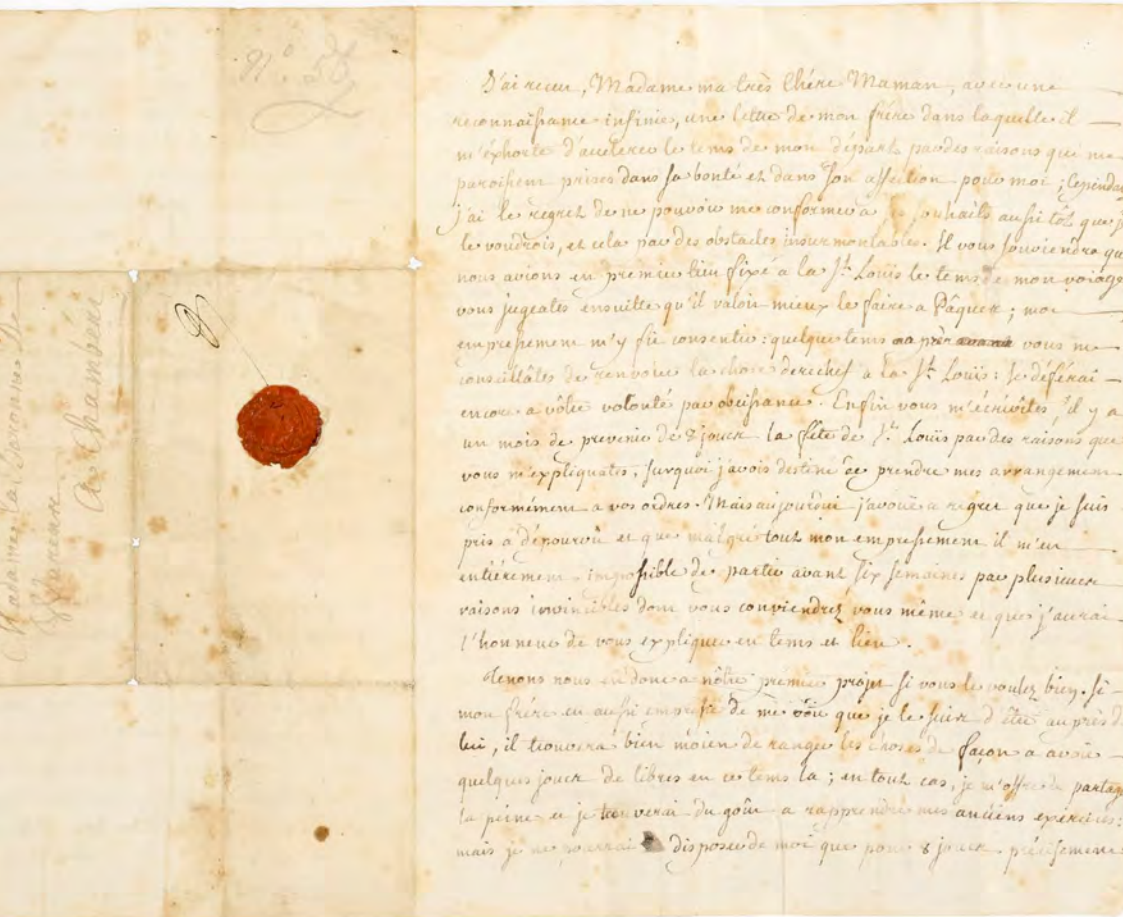 N.º 58
Madame la Baronne De
Warens
A Chambéri
J'ai receu, Madame ma très Chére Maman, avec une
reconnaissance infinies, une lettre de mon frére dans laquelle il
m'éxhorte d'accelerer le tems de mon départ par des raisons qui me
paroissent prises dans sa bonté et dans son affection pour moi ; Cependan
j'ai le regret de ne pouvoir me conformer a ses souhaits aussi tôt que j
le voudrois, et cela par des obstacles insurmontables. Il vous souviendra que
nous avions en premier lieu fixé a la St. Loüis le tems de mon voiage
vous jugeates ensuitte qu'il valoit mieux le faire a Pâques ; mon
empressement m'y fit consentir : quelque tems après vous me
conseillâtes de renvoier la chose derechef a la St. Loüis : Je déférai
encore a vôtre volonté par obeissance. Enfin vous m'écrivites, il y a
un mois de prevenir de 8 jours la fête de St. Loüis par des raisons que
vous m'expliquates, surquoi j'avois destiné de prendre mes arrangemens
conformément a vos ordres. Mais aujourdui j'avoüe a regret que je suis
pris a dépourvû et que malgré tout mon empressement il m'est
entiérement impossible de partir avant six semaines par plusieurs
raisons invincibles dont vous conviendrez vous même et que j'aurai
l'honneur de vous expliquer en tems et lieu.
Tenons nous en donc a nôtre prémier projet si vous le voulez bien. Si
mon frére est aussi empressé de me voir que je le suis d'être auprès de
lui, il trouvera bien moien de ranger les choses de façon a avoir
quelques jours de libres en ce tems la ; en tout cas, je m'offre de partage
la peine et je trouverai du goût a rapprendre mes anciens exercices :
mais je ne pourrai disposer de moi que pour 8 jours précisement